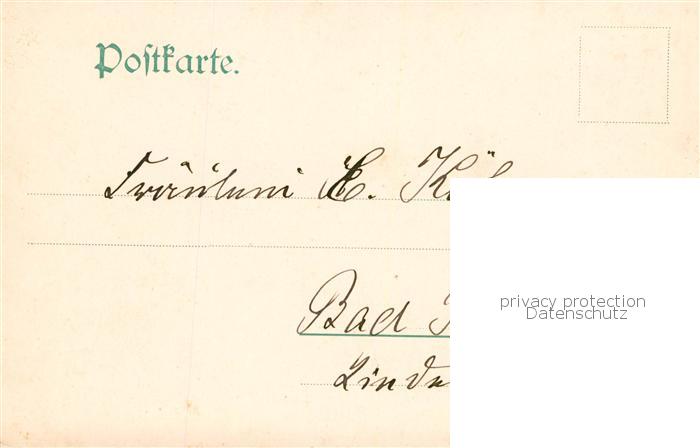 Postkarte.
Fräulein E. Kö
Bad
Linde
privacy protection
Datenschutz